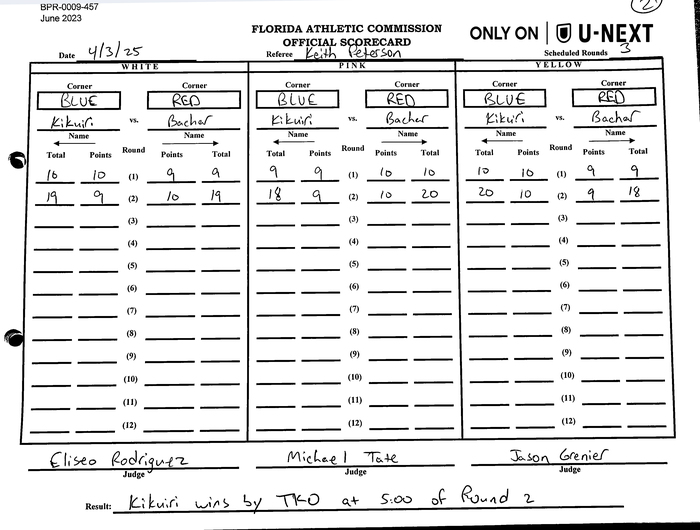 BPR-0009-457
June 2023
2
FLORIDA ATHLETIC COMMISSION
OFFICIAL SCORECARD
ONLY ON | U-NEXT
Date 4/3/25 Referee Keith Peterson Scheduled Rounds 3
WHITE PINK YELLOW
Corner Corner Corner Corner Corner Corner
BLUE RED BLUE RED BLUE RED
Kikuiri vs. Bachar Kikuiri vs. Bachar Kikuiri vs. Bachar
Name Name Name Name Name Name
Total Points Round Points Total Total Points Round Points Total Total Points Round Points Total
10 10 (1) 9 9 9 9 (1) 10 10 10 10 (1) 9 9
19 9 (2) 10 19 18 9 (2) 10 20 20 10 (2) 9 18
(3) (3) (3)
(4) (4) (4)
(5) (5) (5)
(6) (6) (6)
(7) (7) (7)
(8) (8) (8)
(9) (9) (9)
(10) (10) (10)
(11) (11) (11)
(12) (12) (12)
Eliseo Rodriguez Michael Tate Jason Grenier
Judge Judge Judge
Result: Kikuiri wins by TKO at 5:00 of Round 2